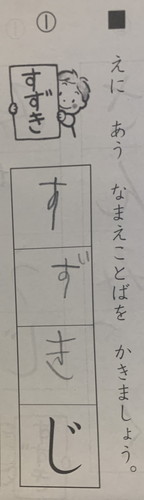 えに あう なまえことばを かきましょう。
①
すずき
すずきじ